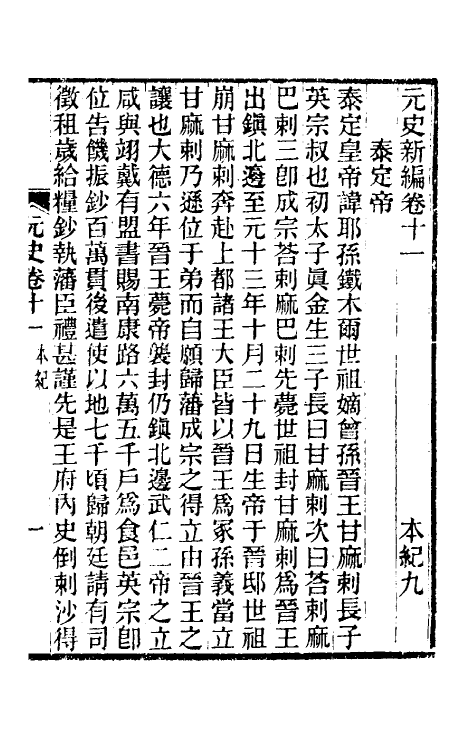 元史新編卷十一
本紀九
泰定帝
泰定皇帝諱耶孫鐵木爾世祖嫡曾孫晉王甘麻剌長子
英宗叔也初太子眞金生三子長曰甘麻剌次曰荅剌麻
巴剌三卽成宗荅剌麻巴剌先薨世祖封甘麻剌爲晉王
出鎭北邊至元十三年十月二十九日生帝于晉邸世祖
崩甘麻剌奔赴上都諸王大臣皆以晉王爲冢孫義當立
甘麻剌乃遜位于弟而自願歸藩成宗之得立由晉王之
讓也大德六年晉王薨帝襲封仍鎭北邊武仁二帝之立
咸與翊戴有盟書賜南康路六萬五千戶爲食邑英宗卽
位告饑振鈔百萬貫後遣使以地七千頃歸朝廷請有司
徵租歲給糧鈔執藩臣禮甚謹先是王府內史倒剌沙得
元史卷十一 本紀
一